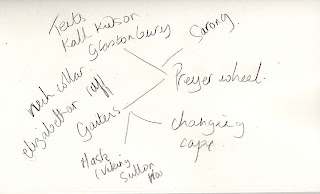 Tents
Glastonbury
Caring
Prayer wheel
neck collar
elizabethan ruff
Gaiters
changing
cape
Mask
(viking
Sutton
Hoo